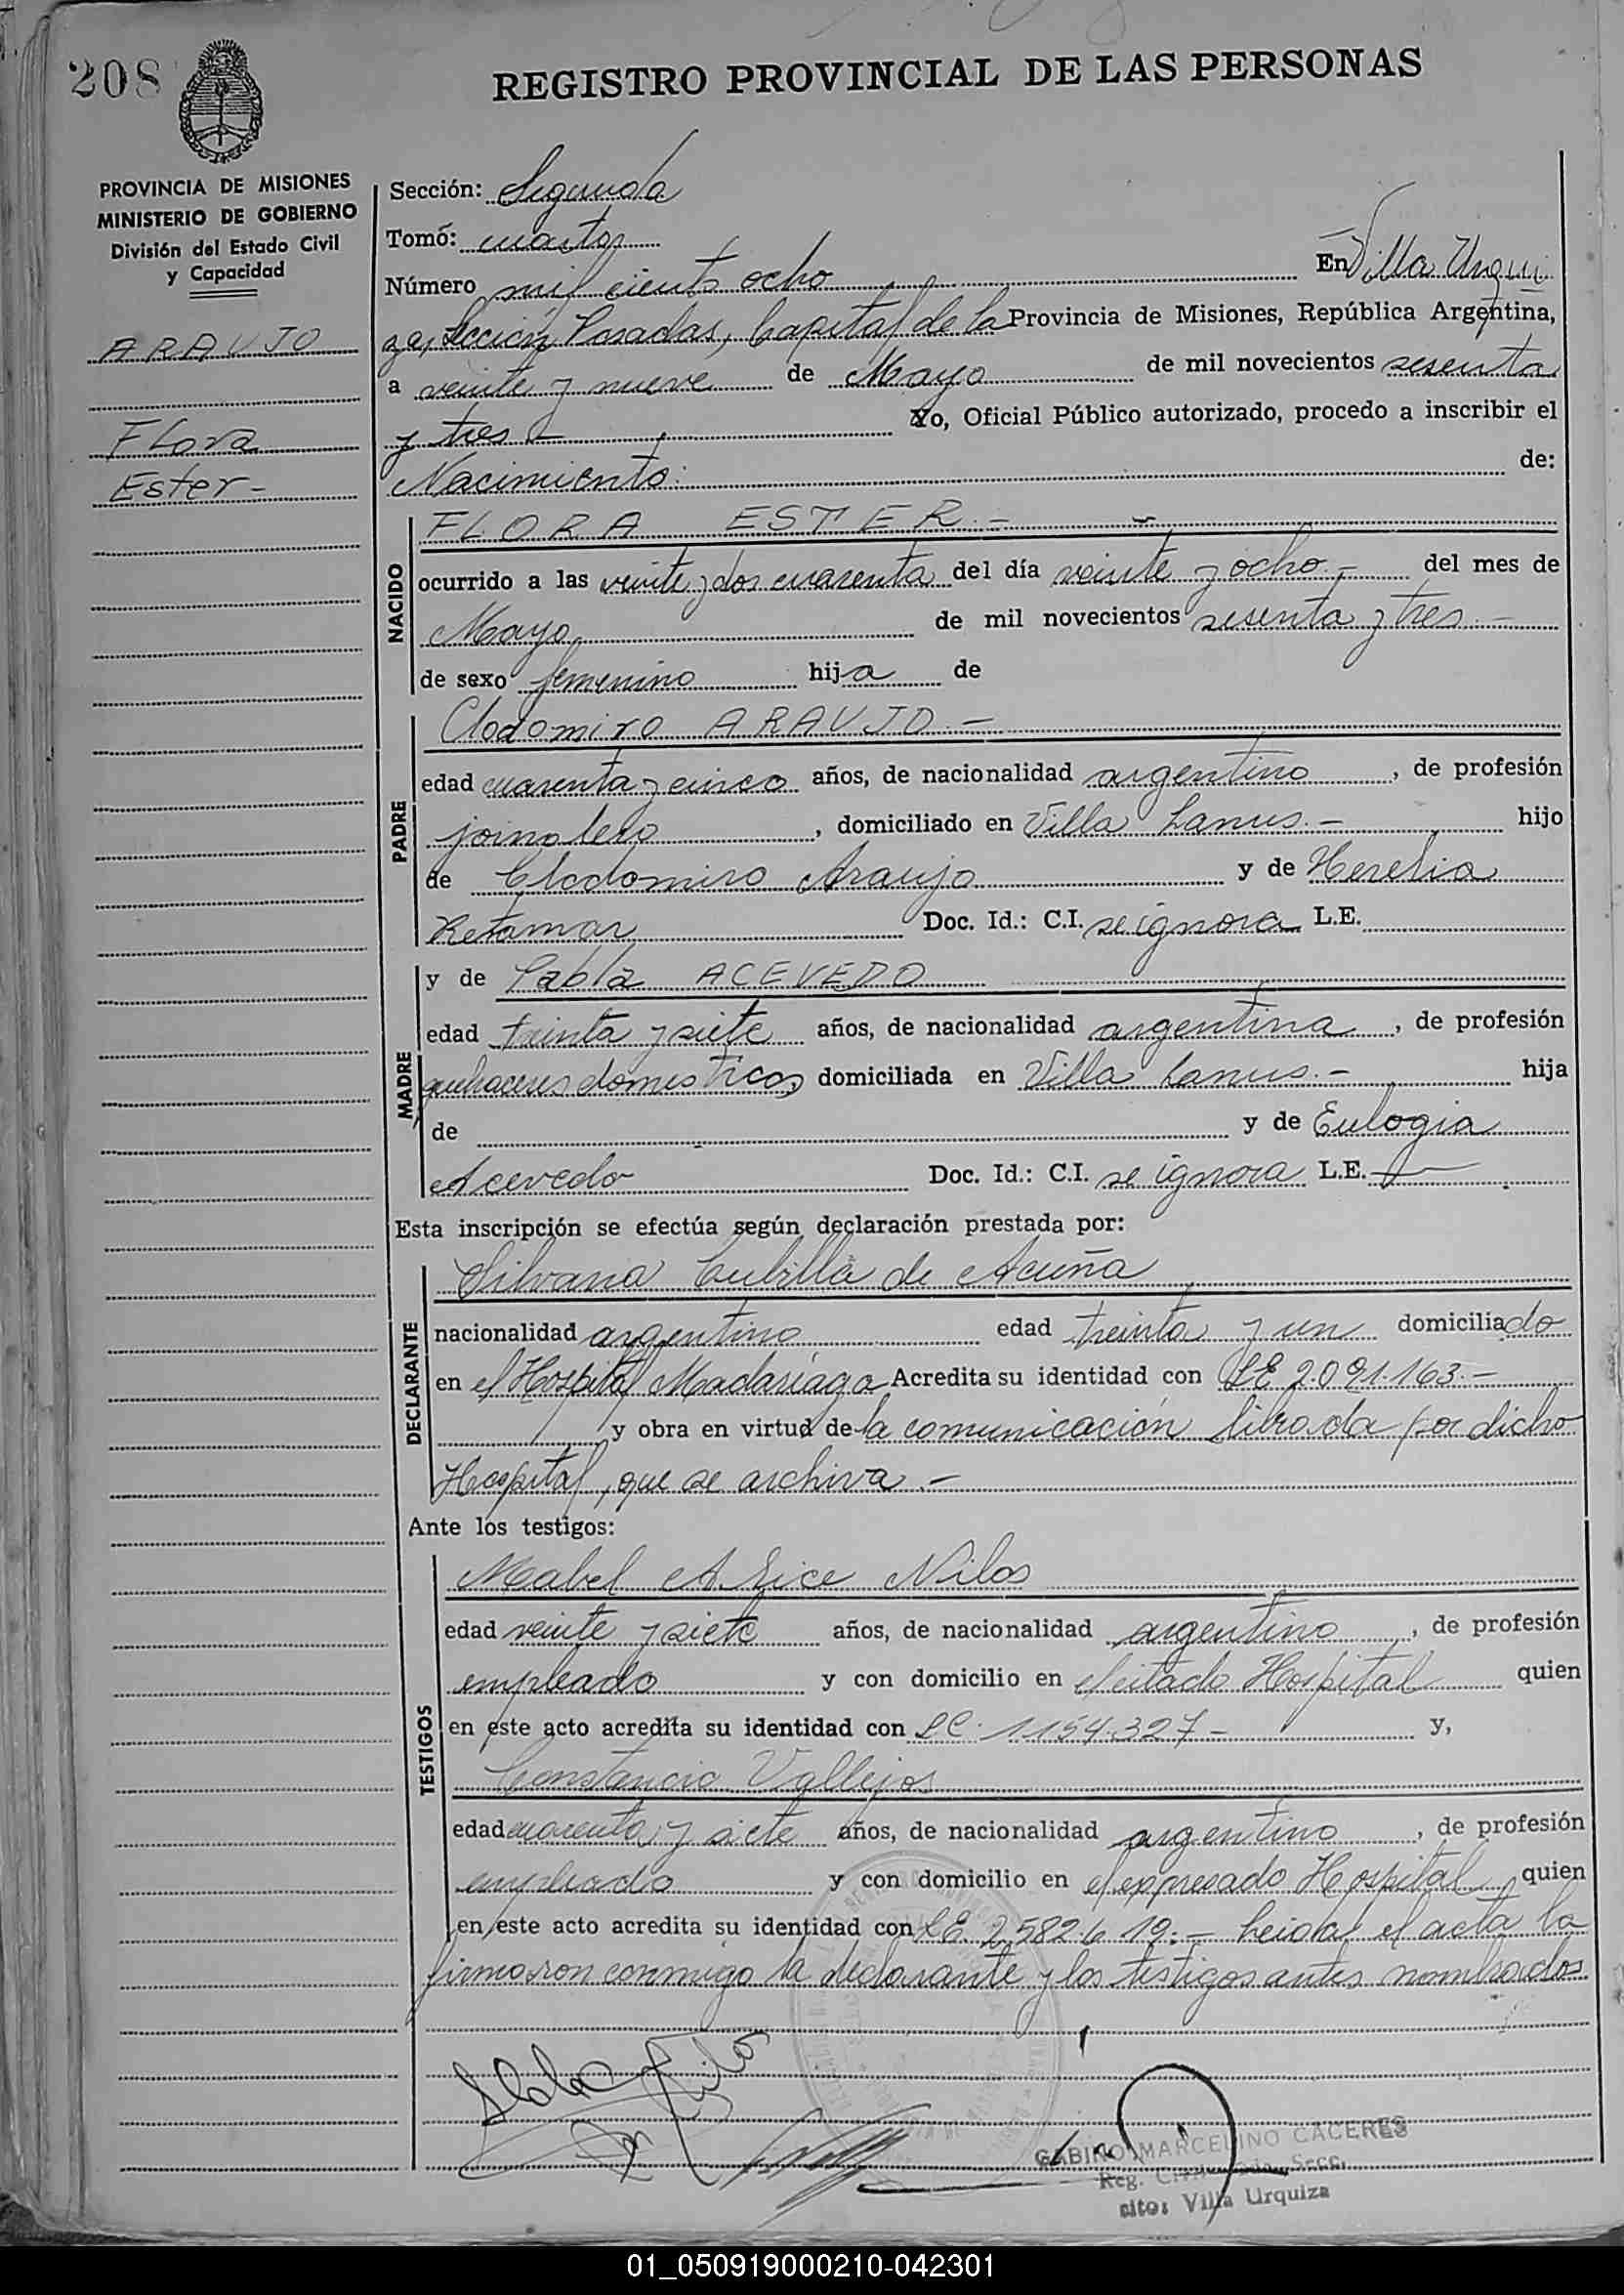 208
REGISTRO PROVINCIAL DE LAS PERSONAS
PROVINCIA DE MISIONES
MINISTERIO DE GOBIERNO
División del Estado Civil
y Capacidad
ARAUJO
Flora
Ester -
Sección: Segunda
Tomo: cuarto
Número mil ciento ocho En Villa Urqui
za, Sección Posadas, Capital de la Provincia de Misiones, República Argentina,
a veinte y nueve de Mayo de mil novecientos sesenta
y tres Yo, Oficial Público autorizado, procedo a inscribir el
Nacimiento: de:
NACIDO
FLORA ESTER.-
ocurrido a las veinte y dos cuarenta del día veinte y ocho - del mes de
Mayo de mil novecientos sesenta y tres.-
de sexo femenino hija de
PADRE
Clodomiro ARAUJO.-
edad cuarenta y cinco años, de nacionalidad argentino, de profesión
jornalero, domiciliado en Villa Lanus.- hijo
de Clodomiro Araujo y de Herelia
Retamar Doc. Id.: C.I. se ignora L.E.
MADRE
y de Pabla ACEVEDO
edad treinta y siete años, de nacionalidad argentina, de profesión
quehaceres domesticos, domiciliada en Villa Lanus.- hija
de y de Eulogia
Acevedo Doc. Id.: C.I. se ignora L.E.
Esta inscripción se efectúa según declaración prestada por:
DECLARANTE
Silvana Cubilla de Acuña
nacionalidad argentino edad treinta y un domiciliado
en el Hospital Madariaga Acredita su identidad con LE 2.091.163.-
y obra en virtud de la comunicación librada por dicho
Hospital, que se archiva.-
Ante los testigos:
TESTIGOS
Mabel Alice Nilos
edad veinte y siete años, de nacionalidad argentino, de profesión
empleado y con domicilio en el citado Hospital quien
en este acto acredita su identidad con LC. 1154.327- y,
Constancio Vallejos
edad cuarenta y siete años, de nacionalidad argentino, de profesión
empleado y con domicilio en el expresado Hospital quien
en este acto acredita su identidad con LE. 2.582.6 19.- Leida el acta la
firmaron conmigo la declarante y los testigos antes nombrados
GABINO MARCELINO CACERES
Reg. Secc.
sito: Villa Urquiza
01_050919000210-042301